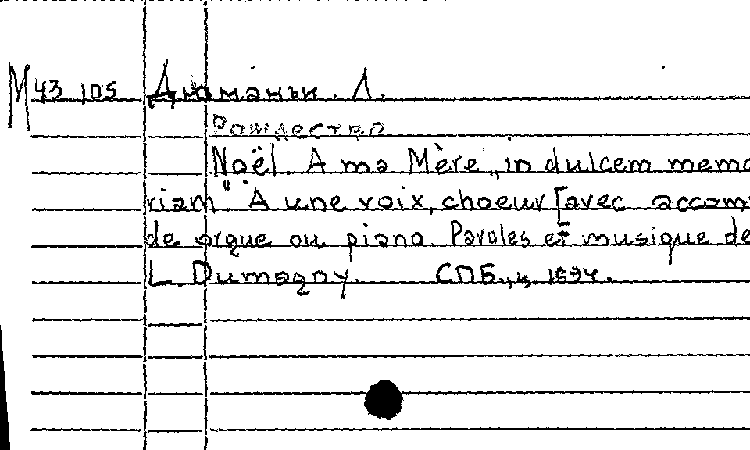 M 43 105 Дюманьи. Л.
Рождество
Noël. A ma Mère „in dulcem memo
riam" A une voix, choeur [avec accom
de orgue ou piano. Paroles et musique de
L. Dumagny. СПБ., ц. 1894.